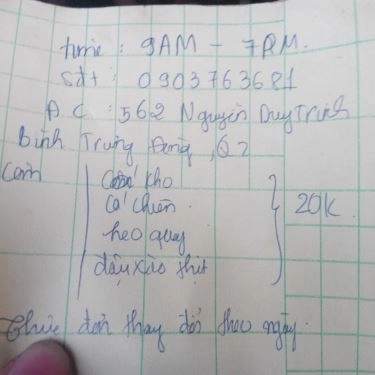 time : 9AM - 7PM.
sđt : 0903763681
ĐC : 562 Nguyễn Duy Trinh
Bình Trưng Đông, Q2
Cơm
cá kho
cá chiên
heo quay
đậu xào thịt
20K.
Thực đơn thay đổi theo ngày.